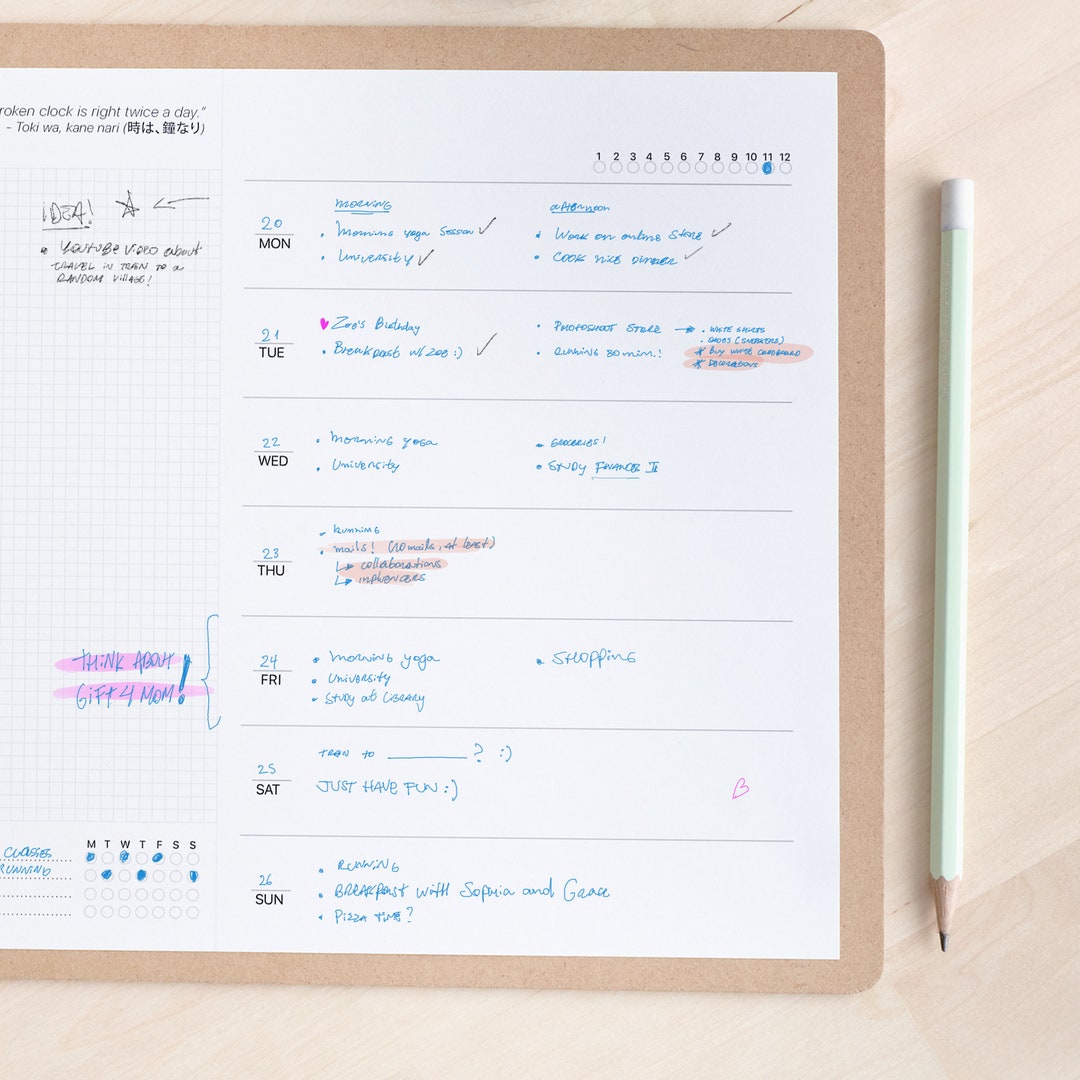 roken clock is right twice a day."
- Toki wa, kane nari (時は、鐘なり)
IDEA!
• YOUTUBE VIDEO about
TRAVEL IN TRAIN TO a
RANDOM VILLAGE!
THINK ABOUT
GIFT 4 MOM!
M T W T F S S
CLASSES
RUNNING
1 2 3 4 5 6 7 8 9 10 11 12
20
MON
MORNING
• Morning yoga Session ✓
• University ✓
aFTERnoon
• Work on online Store ✓
• COOK NICE DINNER ✓
21
TUE
♥ Zoe's Birthday
• Breakfast w/ZOE :) ✓
• PHOTOSHOOT STORE → • WHITE SHIRTS
• SHOES (SNEAKERS)
* Buy WHITE CARDBOARD
* DECORATIONS
• RUNNING 30 min.!
22
WED
• Morning yoga
• University
• GROCERIES!
• STUDY FINANCES II
23
THU
• RUNNING
• mails! (10 mails, at least)
↳ collaborations
↳ INFLUENCERS
24
FRI
• Morning yoga
• University
• STUDY at LIBRARY
• SHOPPING
25
SAT
TRAIN TO ________? :)
JUST HAVE FUN :)
26
SUN
• RUNNING
• BREAKFAST with Sophia and Grace
• PIZZA TIME?